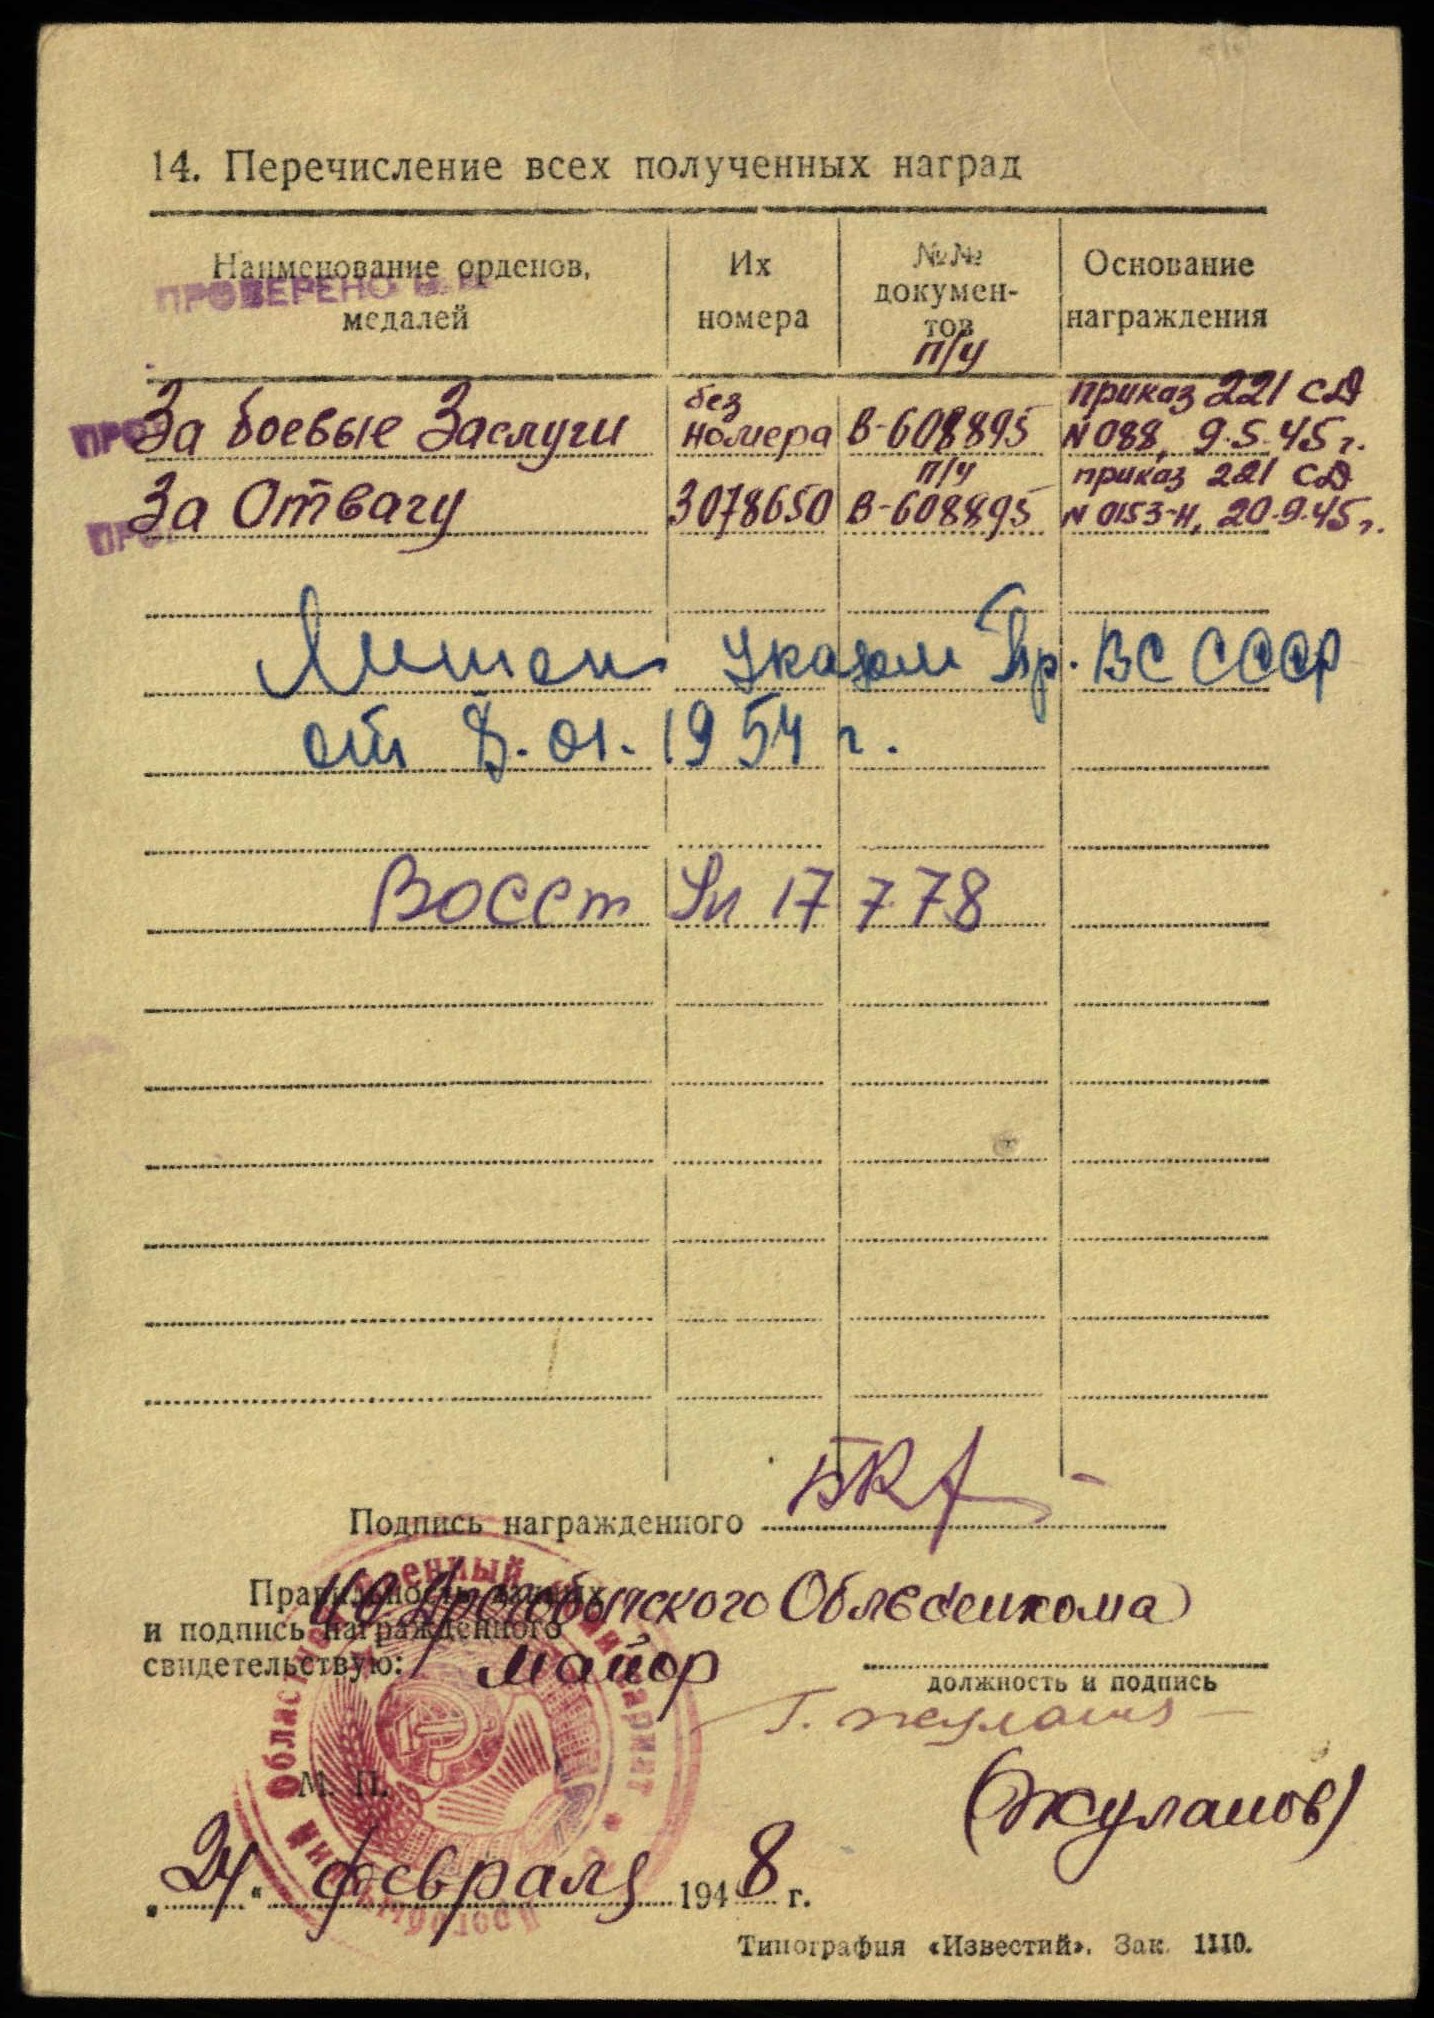 14. Перечисление всех полученных наград
Наименование орденов, медалей
Их номера
№№ документов
Основание награждения
ПРОВЕРЕНО
п/у
За боевые Заслуги без номера В-608895 приказ 221 сд N 088, 9.5.45 г.
ПРО
п/у
За Отвагу 3078650 В-608895 приказ 221 сд N 0153-н, 20.9.45 г.
ПРО
Лишен Указом Пр. ВС СССР
от 8.01.1954 г.
Восст 17 7 78
Подпись награжденного
Правильность данных
и подпись награжденного
свидетельствую:
Дрогобычского Облвоенкома
майор
должность и подпись
Г. Жуланов
(Жуланов)
М. П.
„24“ февраля 1948 г.
Типография «Известий». Зак. 1110.